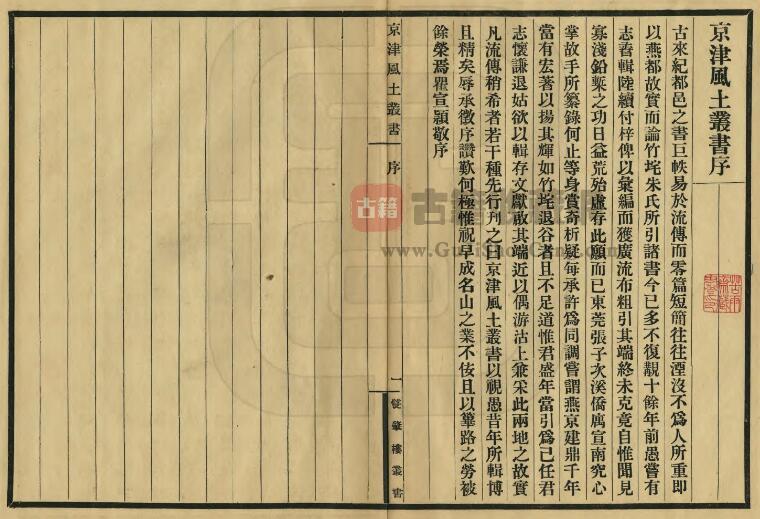 京津風土叢書序
古來紀都邑之書巨帙易於流傳而零篇短簡往往湮沒不爲人所重即
以燕都故實而論竹垞朱氏所引諸書今已多不復覩十餘年前愚嘗有
志蒼輯陸續付梓俾以彙編而獲廣流布粗引其端終未克竟自惟聞見
寡淺鉛槧之功日益荒殆虛存此願而已東莞張子次溪僑寓宣南究心
掌故手所纂錄何止等身賞奇析疑每承許爲同調嘗謂燕京建鼎千年
當有宏著以揚其輝如竹垞退谷者且不足道惟君盛年當引爲已任君
志懷謙退姑欲以輯存文獻啟其端近以偶游沽上兼采此兩地之故實
凡流傳稍希者若干種先行刊之曰京津風土叢書以視愚昔年所輯博
且精矣辱承徵序讚歎何極惟祝早成名山之業不佞且以篳路之勞被
餘榮焉瞿宣穎敬序
京津風土叢書
序
一
雙肇樓叢書
古籍
www.Gu